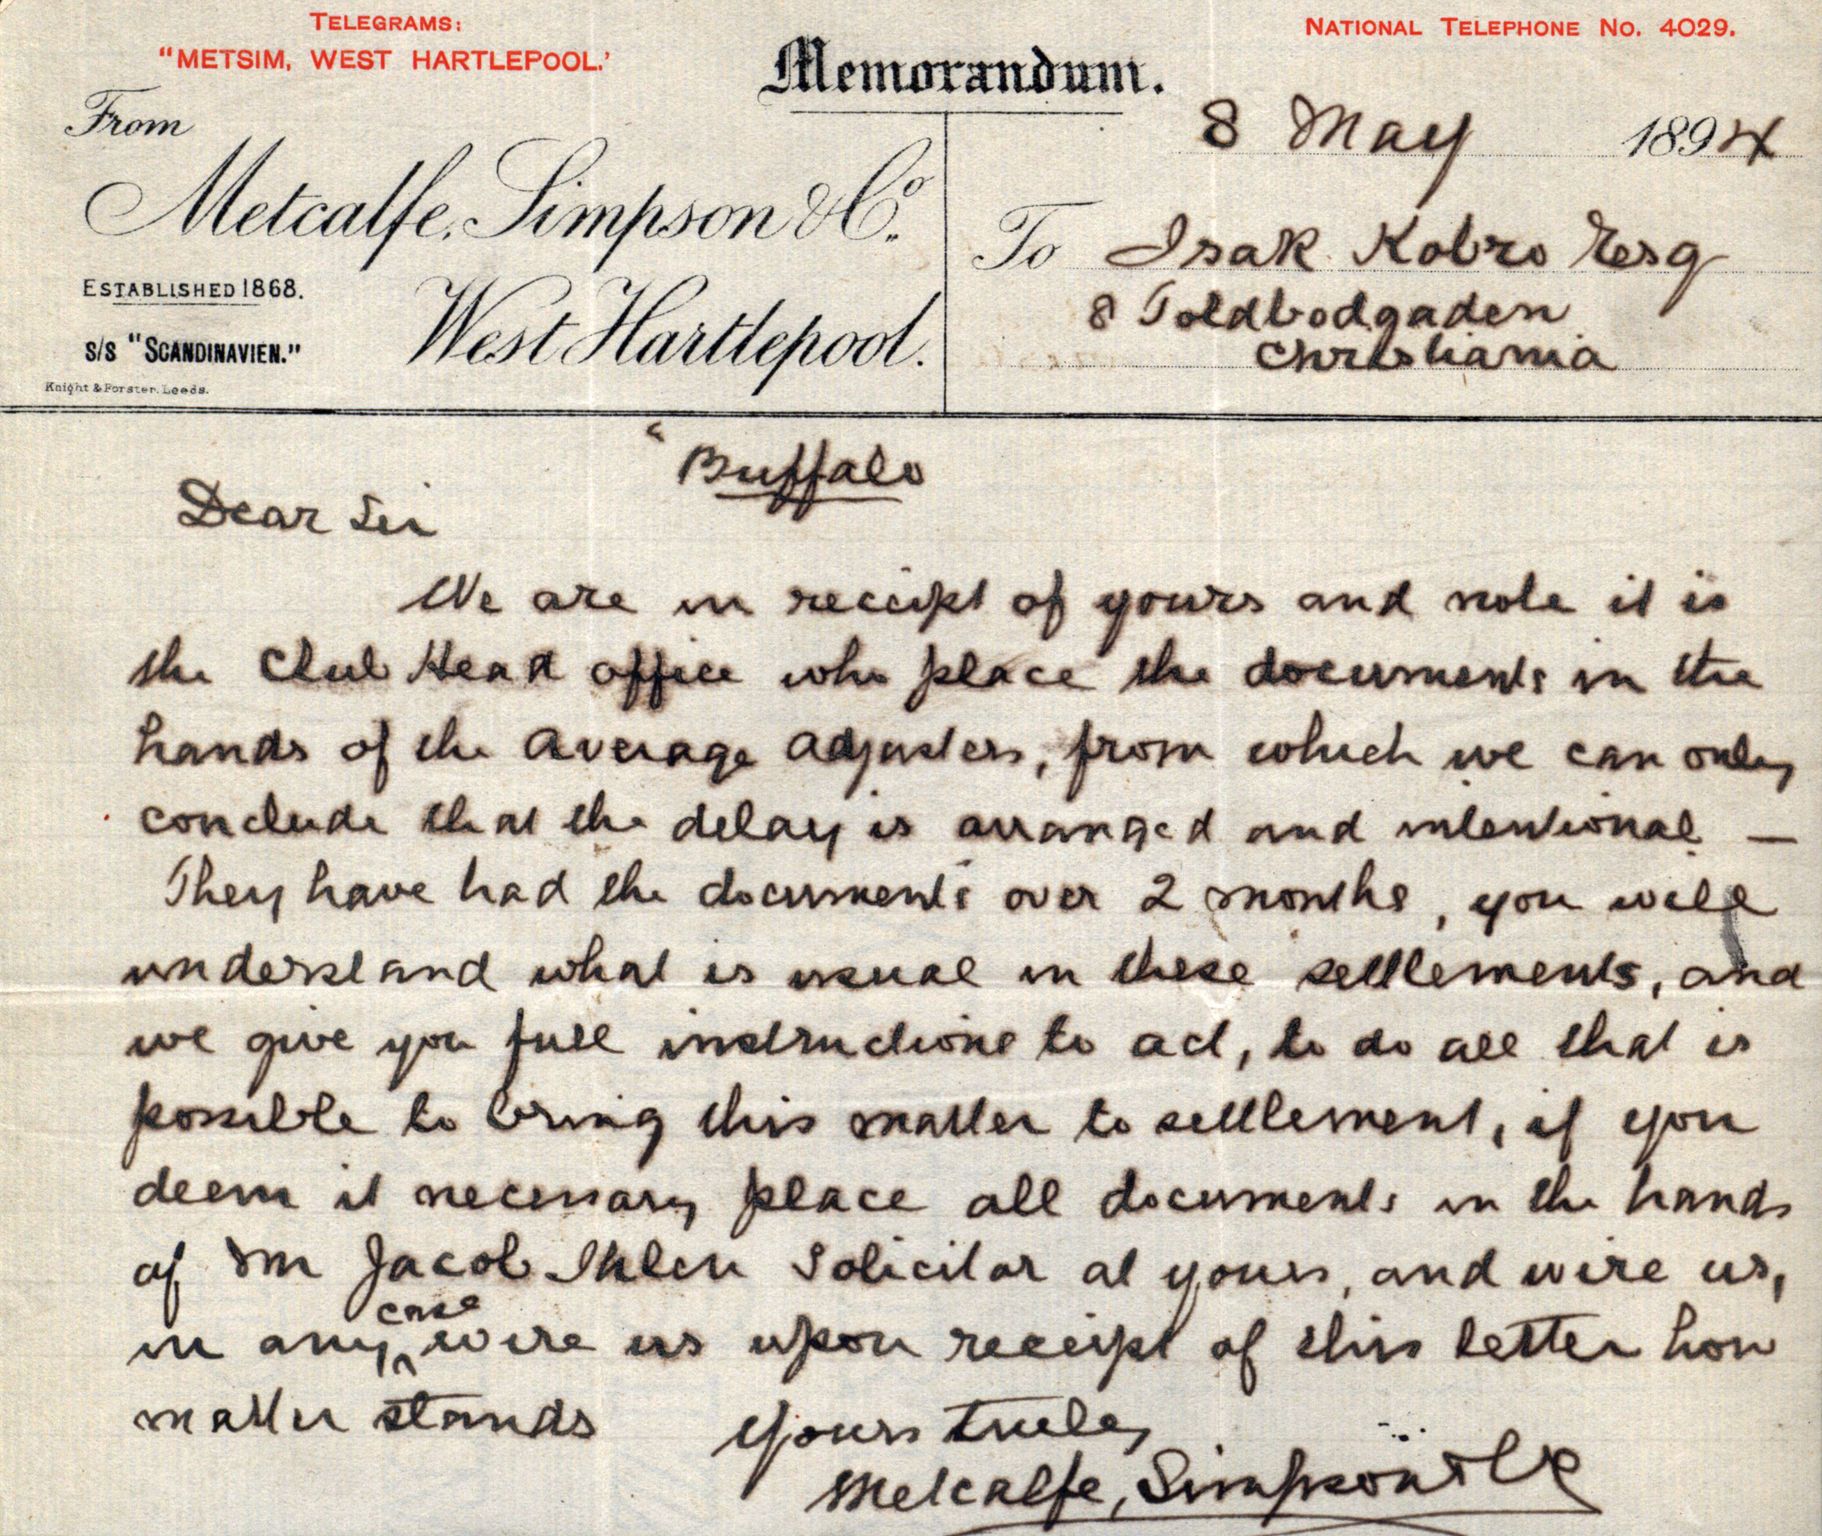 TELEGRAMS:
"METSIM, WEST HARTLEPOOL.'
NATIONAL TELEPHONE No. 4029.
Memorandum.
From
Metcalfe, Simpson & Co.
ESTABLISHED 1868.
S/S "SCANDINAVIEN."
West Hartlepool.
Knight & Forster, Leeds.
8 May 1894
To Isak Kobro Esq
8 Toldbodgaden
Christiania
"Buffalo
Dear Sir
We are in receipt of yours and note it is
the Club Head office who place the documents in the
hands of the Average Adjusters, from which we can only
conclude that the delay is arranged and intentional —
They have had the documents over 2 months, you will
understand what is usual in these settlements, and
we give you full instructions to act, to do all that is
possible to bring this matter to settlement, if you
deem it necessary place all documents in the hands
of Mr Jacob Ihlen Solicitor at yours, and wire us,
in any case wire us upon receipt of this letter how
matter stands
Yours truly
Metcalfe, Simpson & Co